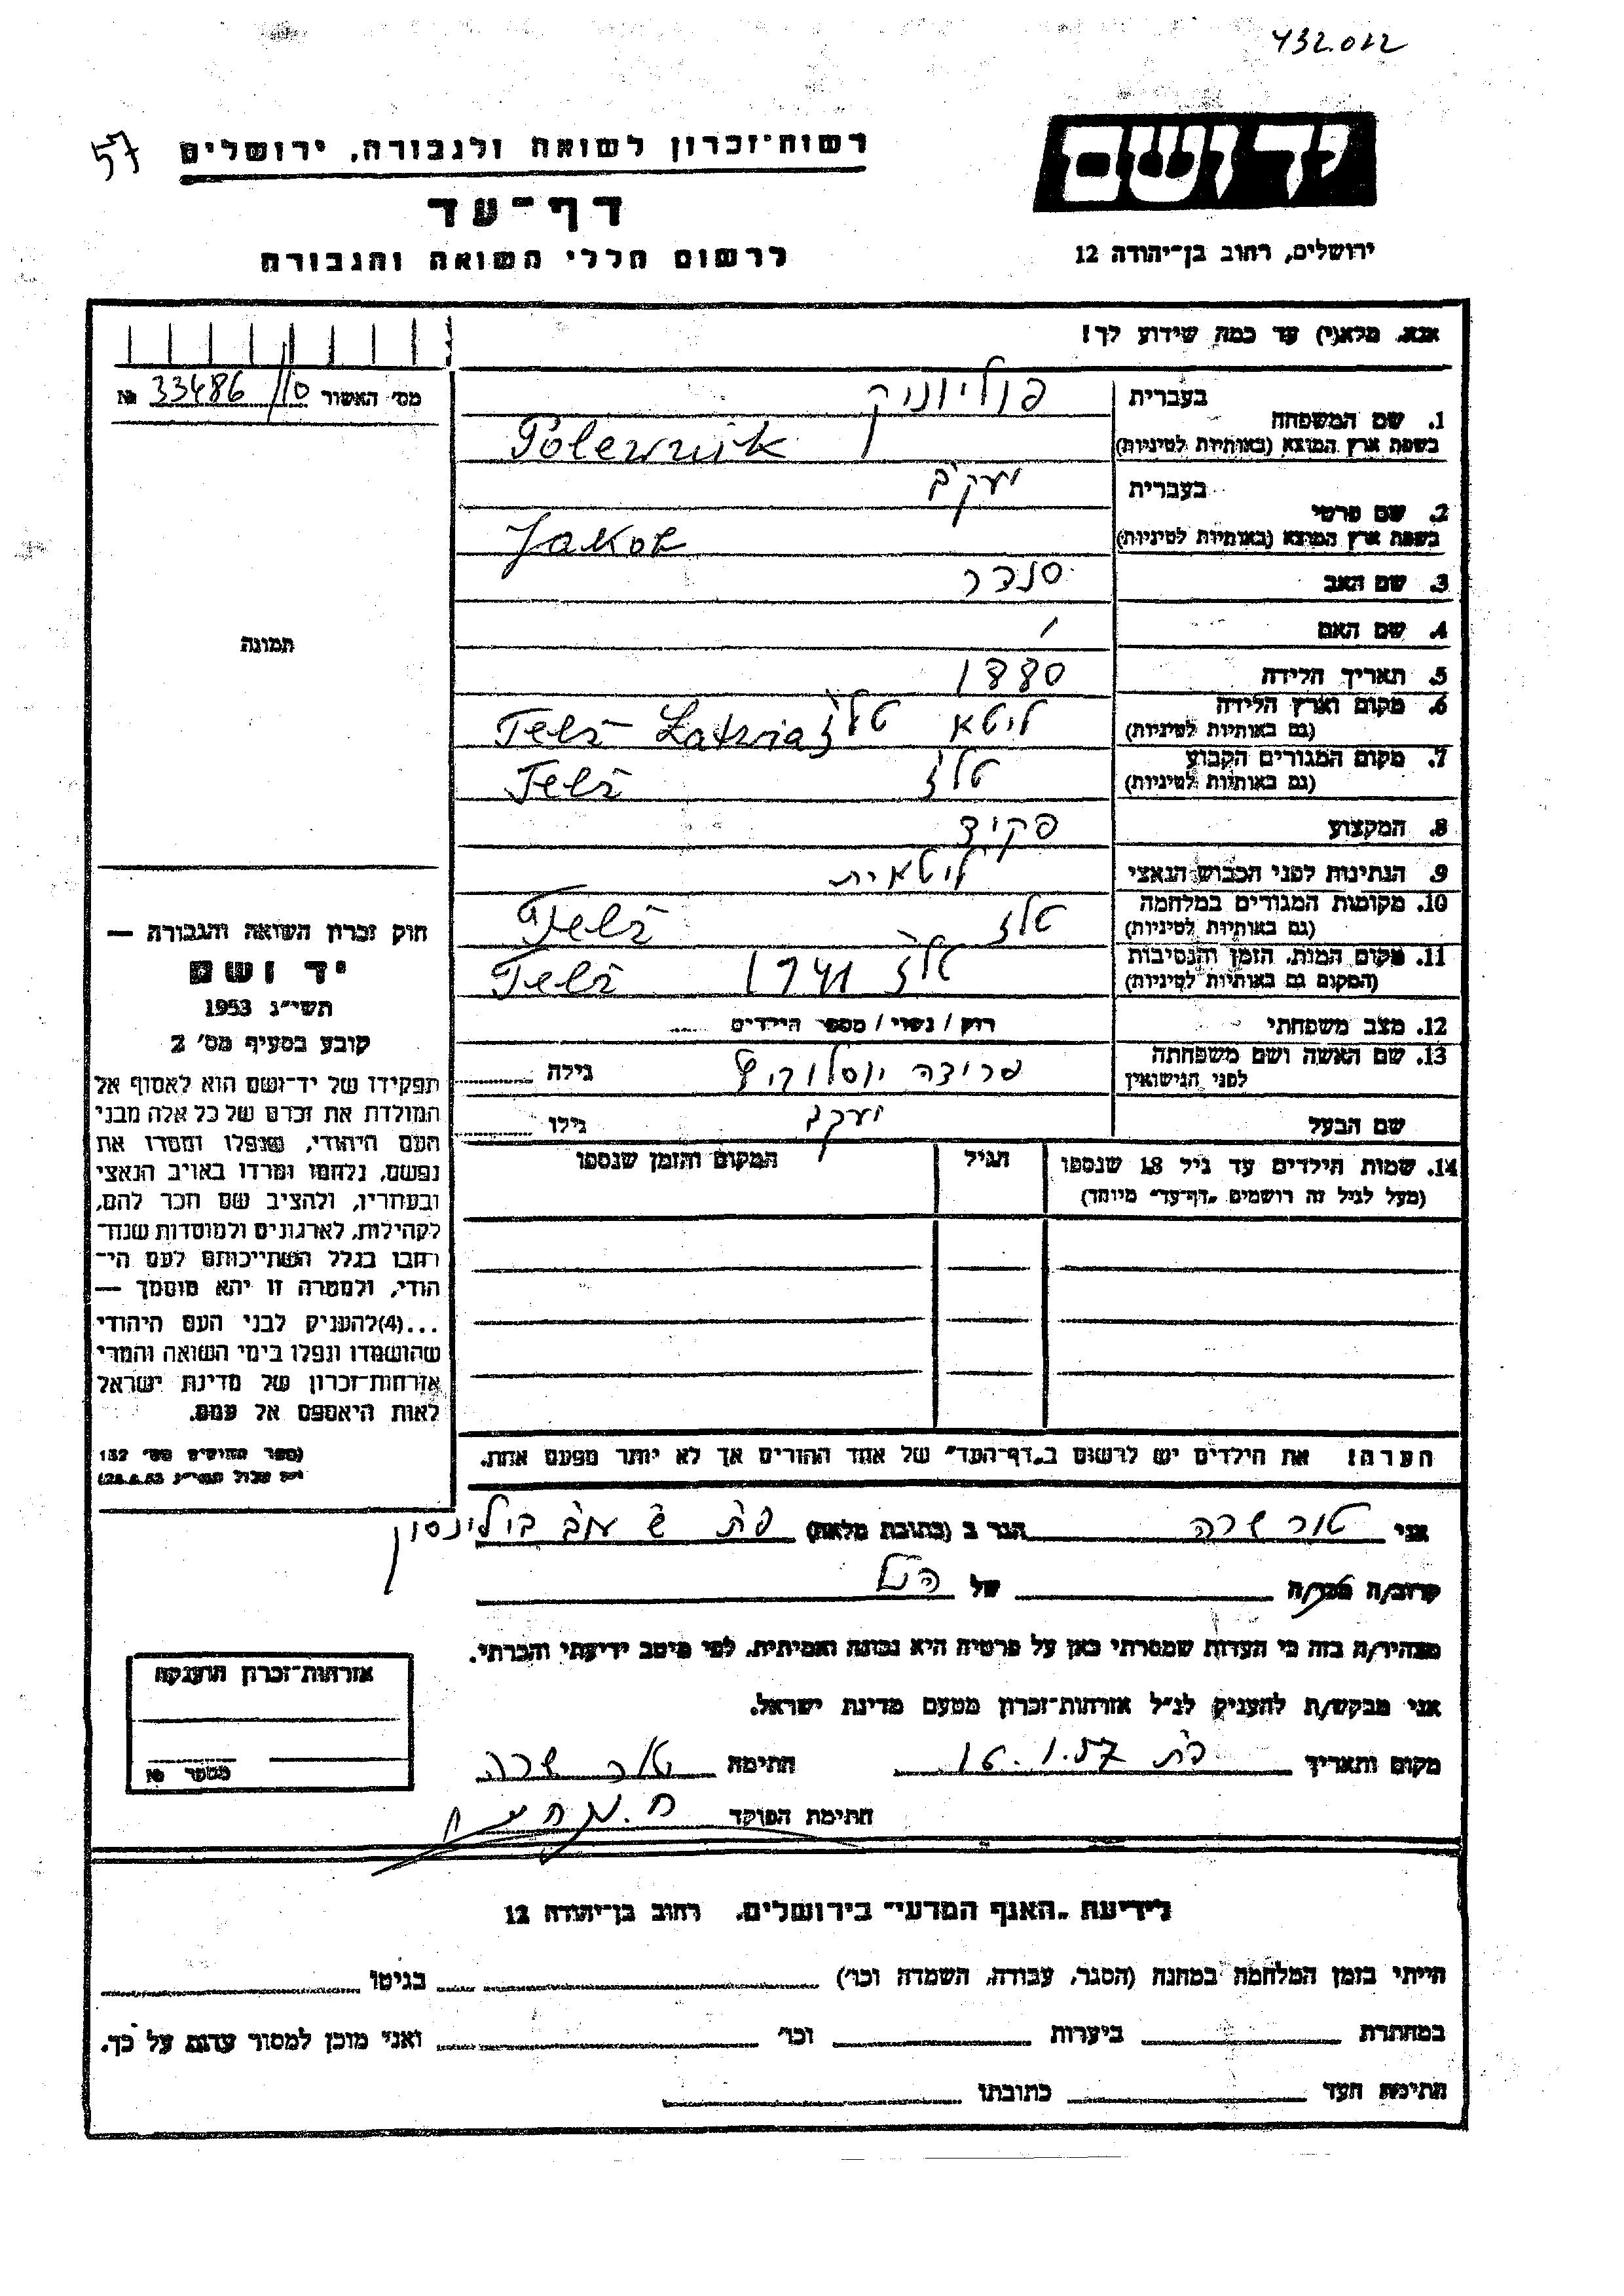 432.012
57
רשות־זכרון לשואה ולגבורה, ירושלים
יד ושם
דף־עד
לרשום חללי השואה והגבורה
ירושלים, רחוב בן־יהודה 12
אנא, מלא(י) עד כמה שידוע לך!
מס׳ האשור 33486/10 №
1. שם המשפחה
בעברית פוליווניק
בשפת ארץ המוצא (באותיות לטיניות) Polewnik
2. שם פרטי
בעברית יעקב
בשפת ארץ המוצא (באותיות לטיניות) Jakob
3. שם האב סנדר
4. שם האם /
5. תאריך הלידה 1880
6. מקום וארץ הלידה ליטא טלז
(גם באותיות לטיניות) Telž Latvia
7. מקום המגורים הקבוע טלז
(גם באותיות לטיניות) Telž
8. המקצוע פקיד
9. הנתינות לפני הכבוש הנאצי ליטאית
10. מקומות המגורים במלחמה טלז
(גם באותיות לטיניות) Telž
11. מקום המות, הזמן והנסיבות טלז 1941
(המקום גם באותיות לטיניות) Telž
12. מצב משפחתי רוק / נשוי / מספר הילדים
13. שם האשה ושם משפחתה
לפני הנישואין פרידה יוסלוביץ גילה
שם הבעל יעקב גילו
14. שמות הילדים עד גיל 18 שנספו
(מעל לגיל זה רושמים „דף־עד״ מיוחד)
הגיל
המקום והזמן שנספו
הערה! את הילדים יש לרשום ב„דף־העד״ של אחד ההורים אך לא יותר מפעם אחת.
תמונה
חוק זכרון השואה והגבורה —
יד ושם
תשי״ג 1953
קובע בסעיף מס׳ 2
תפקידו של יד־ושם הוא לאסוף אל
המולדת את זכרם של כל אלה מבני
העם היהודי, שנפלו ומסרו את
נפשם, נלחמו ומרדו באויב הנאצי
ובעוזריו, ולהציב שם וזכר להם,
לקהילות, לארגונים ולמוסדות שנח־
רבו בגלל השתייכותם לעם הי־
הודי, ולמטרה זו יהא מוסמך —
...(4)להעניק לבני העם היהודי
שהושמדו ונפלו בימי השואה והמרי
אזרחות־זכרון של מדינת ישראל
לאות היאספם אל עמם.
(ספר החוקים מס׳ 132
אני טור שרה הגר ב (כתובת מלאה) פ״ת בילינסון
קרוב/ה מכר/ה של הנ״ל
מצהיר/ה בזה כי העדות שמסרתי כאן על פרטיה היא נכונה ואמיתית, לפי מיטב ידיעתי והכרתי.
אני מבקש/ת להעניק לנ״ל אזרחות־זכרון מטעם מדינת ישראל.
מקום ותאריך פ״ת 16.1.57 חתימה טור שרה
חתימת הפוקד
אזרחות־זכרון הוענקה
מספר №
לידיעת „האגף המדעי״ בירושלים, רחוב בן־יהודה 12
הייתי בזמן המלחמה במחנה (הסגר, עבודה, השמדה וכו׳) בגיטו
במחתרת ביערות וכו׳ ואני מוכן למסור עדות על כך.
חתימת העד כתובתו